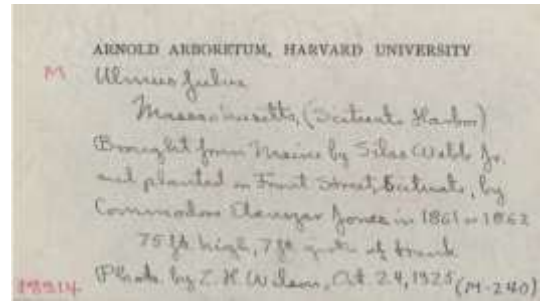 ARNOLD ARBORETUM, HARVARD UNIVERSITY
M Ulmus fulva
Massachusetts, (Scituate Harbor)
Brought from Maine by Silas Webb Jr.
and planted on Front Street, Scituate, by
Commodore Ebenezer Jones in 1861 or 1862
75 ft high, 7 ft girth of trunk
Photo. by E. H. Wilson, Oct 24, 1925 (M-240)